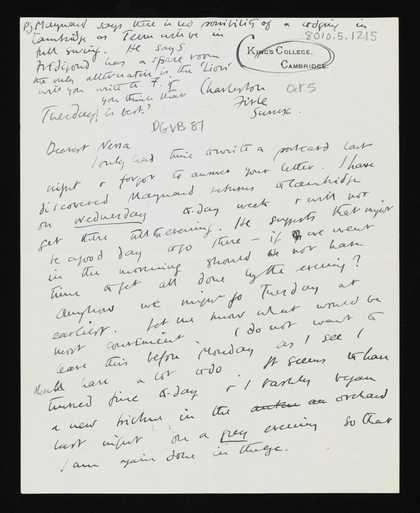 PS Maynard says there is no possibility of a lodging in
Cambridge as Term will be in
full swing. He says
has a spare room
the only alternative is the 'Lion'
will you write to F. if
you think that
Tuesday is best?
8010.5.1215
KING'S COLLEGE,
CAMBRIDGE.
Charleston Oct 5
Firle
Sussex.
DGVB 87
Dearest Nessa
I only had time to write a postcard last
night & forgot to answer your letter. I have
discovered Maynard returns to Cambridge
on Wednesday today week & will not
get there till the evening. He suggests that might
be a good day to go there – if we went
in the morning should we not have
time to get all done by the evening?
Anyhow we might go Tuesday at
earliest. Let me know what would be
most convenient. I do not want to
leave this before Monday as I see I
shall have a lot to do. It seems to have
turned fine today & I rashly began
a new picture in the orchard
last night on a grey evening so that
I am again done in the eye.